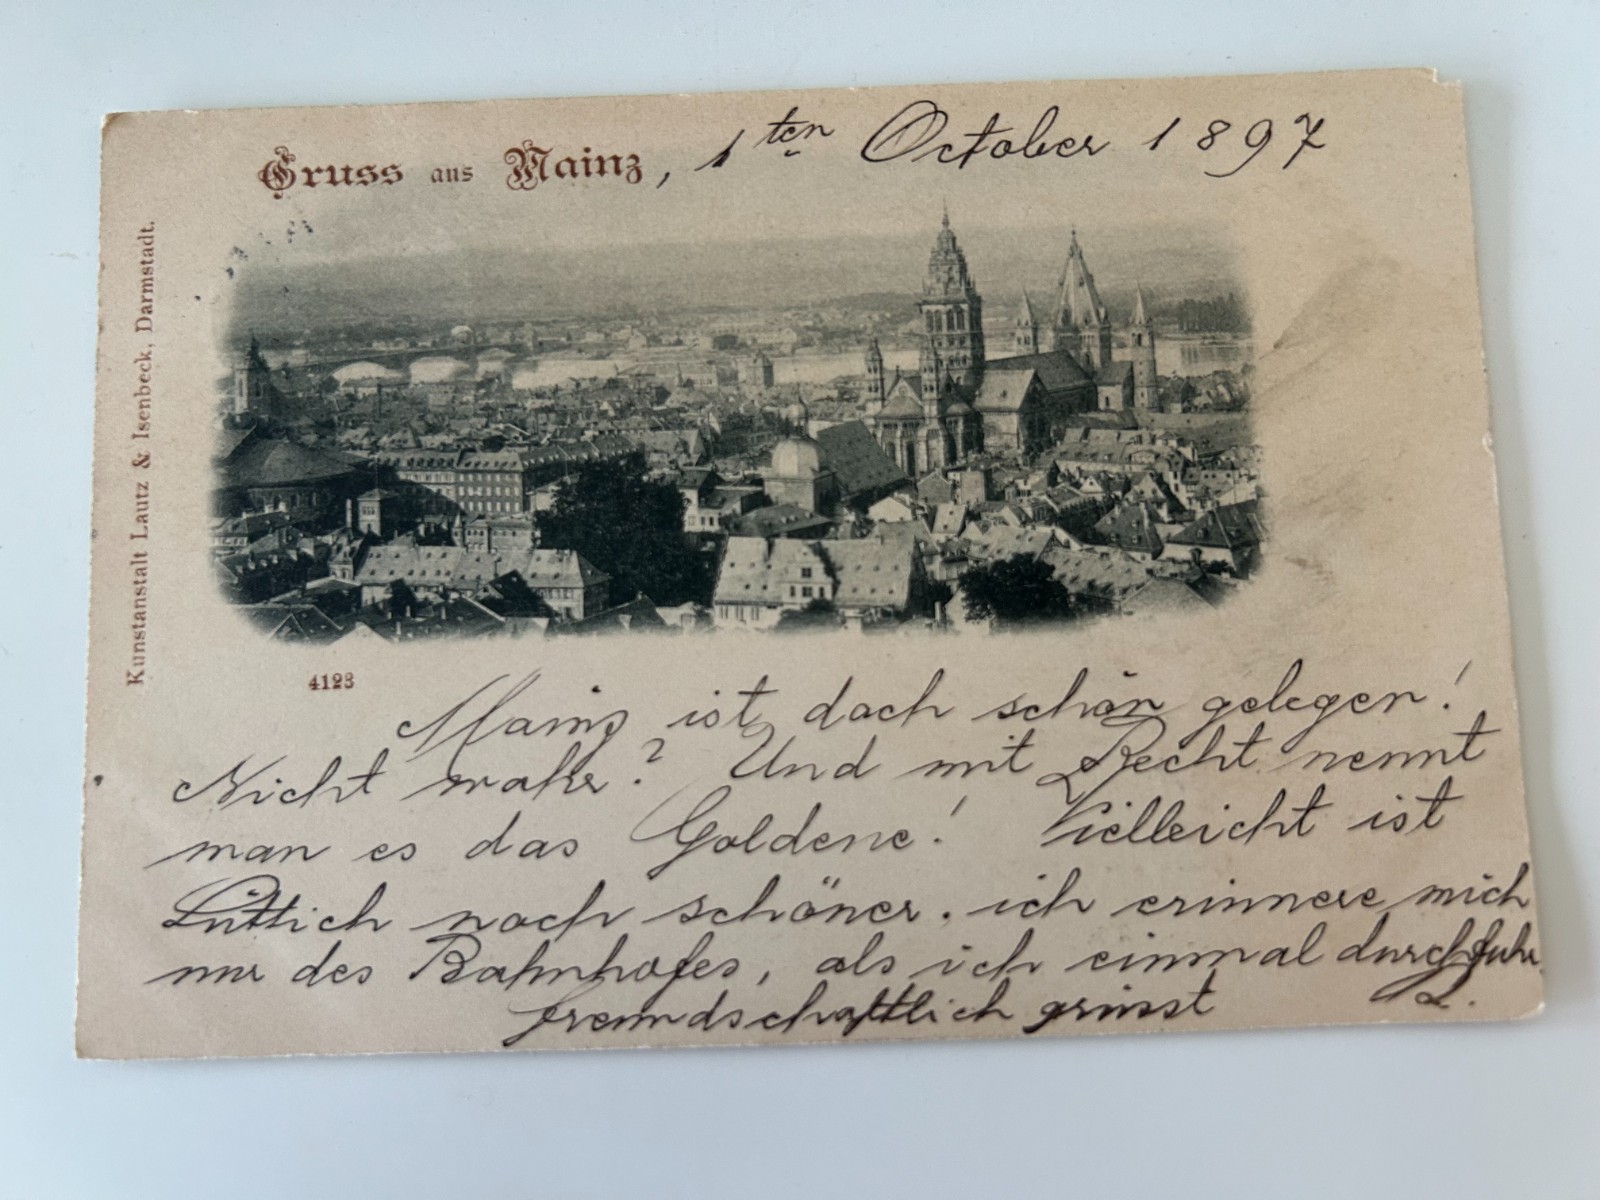 Gruss aus Mainz, 1ten October 1897
Kunstanstalt Lautz & Isenbeck, Darmstadt.
4123
Mainz ist doch schön gelegen!
Nicht wahr? Und mit Recht nennt
man es das Goldene! Vielleicht ist
Lüttich noch schöner. ich erinnere mich
nur des Bahnhofes, als ich einmal durchfuhr
freundschaftlich grüsst L.